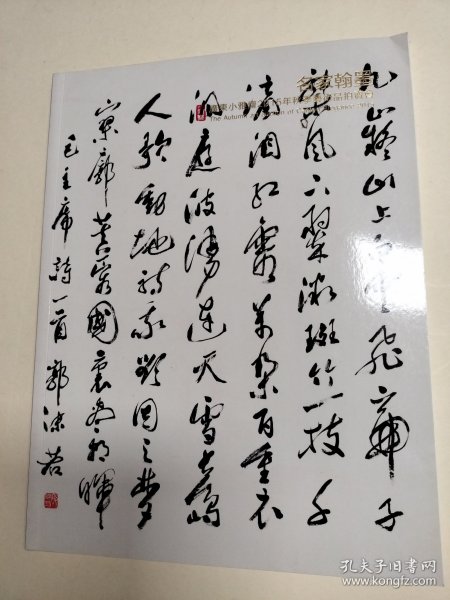 九嶷山上白雲飛帝子
乘風下翠微斑竹一枝千
滴淚紅霞萬朵百重衣
洞庭波湧連天雪長島
人歌動地詩我欲因之夢
寥廓芙蓉國裏盡朝暉
毛主席詩一首 郭沫若
名家翰墨
孔夫子旧书网
www.kongfz.com